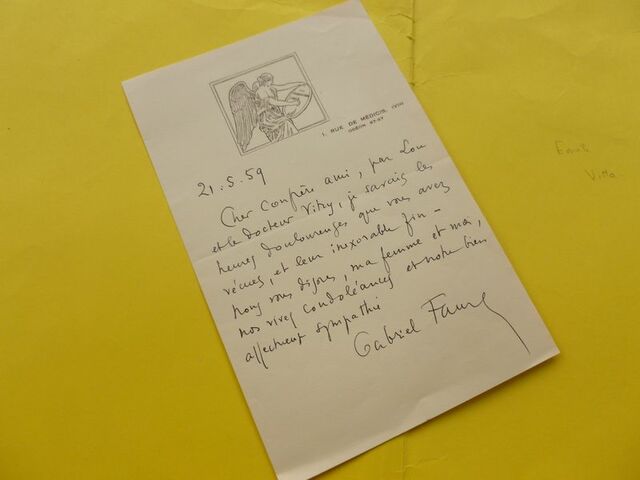 1, RUE DE MÉDICIS, (VIe)
ODÉON 57-67
21.5.59
Cher Confrère ami, par Lou
et le docteur Vitry, je savais les
heures douloureuses que vous avez
vécues, et leur inexorable fin —
nous vous disons, ma femme et moi,
nos vives condoléances et notre bien
affectueuse sympathie
Gabriel Faure